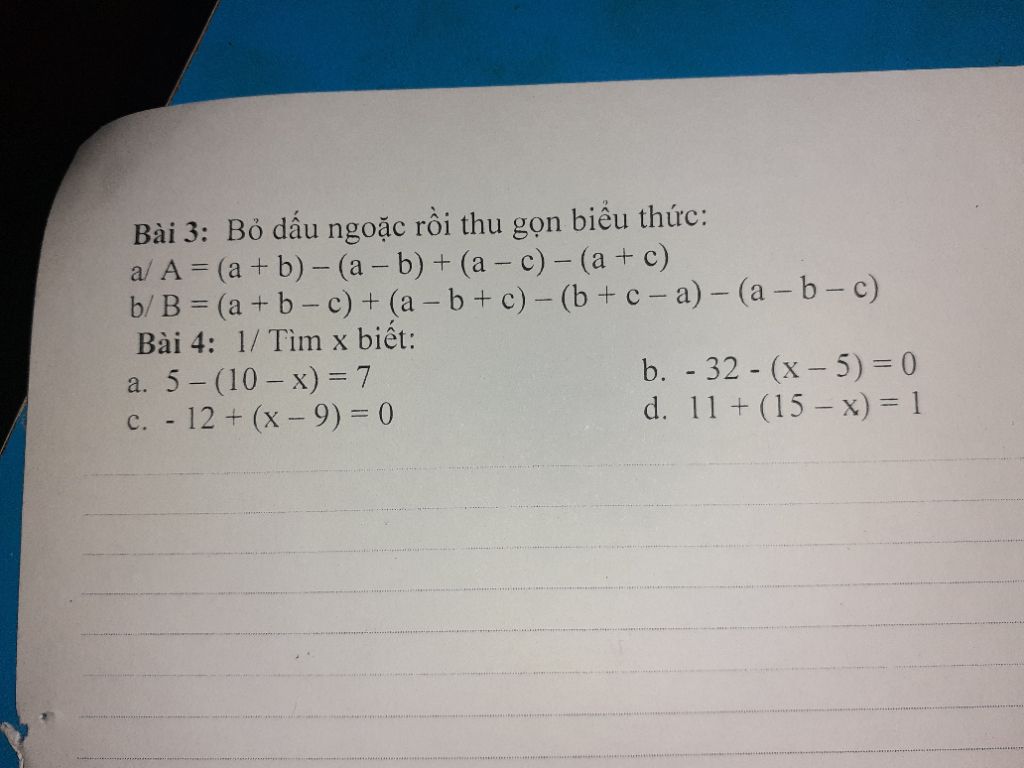 Bài 3: Bỏ dấu ngoặc rồi thu gọn biểu thức:
a/ A = (a + b) – (a – b) + (a – c) – (a + c)
b/ B = (a + b – c) + (a – b + c) – (b + c – a) – (a – b – c)
Bài 4: 1/ Tìm x biết:
a. 5 – (10 – x) = 7 b. - 32 - (x – 5) = 0
c. - 12 + (x – 9) = 0 d. 11 + (15 – x) = 1